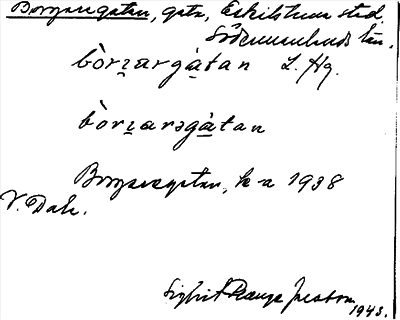 Borgaregatan, gata, Eskilstuna stad,
Södermanlands län.
bòri̲argà̲tan L. Hg.
bòri̲arəgà̲tan
Borgaregatan, k-a 1938
V. Dah.
1943.